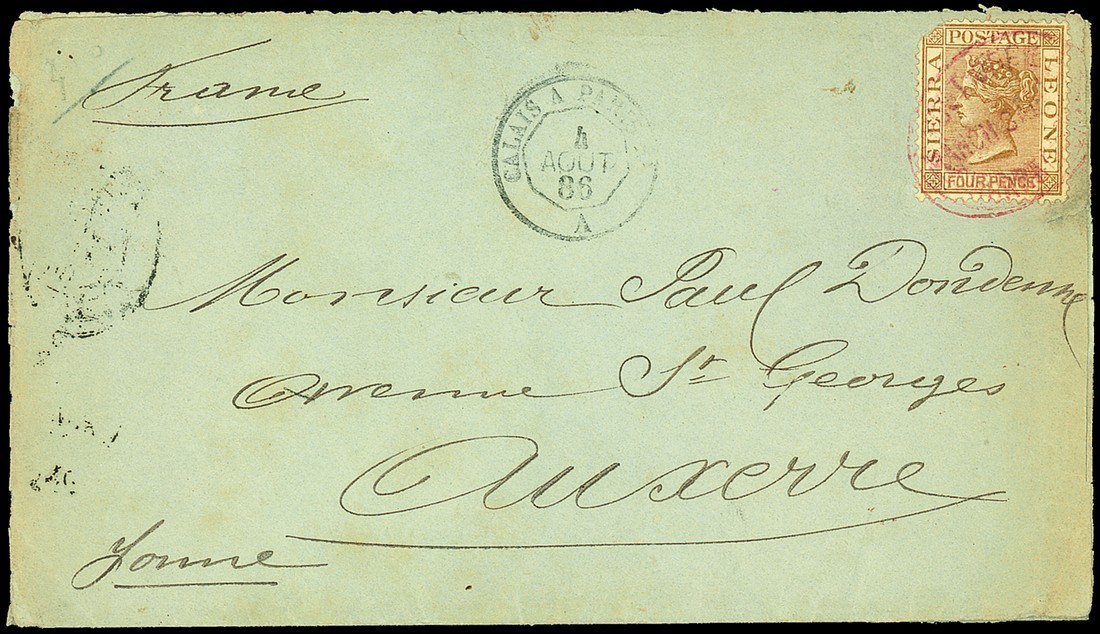 France
CALAIS A PARIS
4
AOUT
86
A
POSTAGE
SIERRA
LEONE
FOUR PENCE
Monsieur Paul Dondenne
Avenue St Georges
Auxerre
Yonne